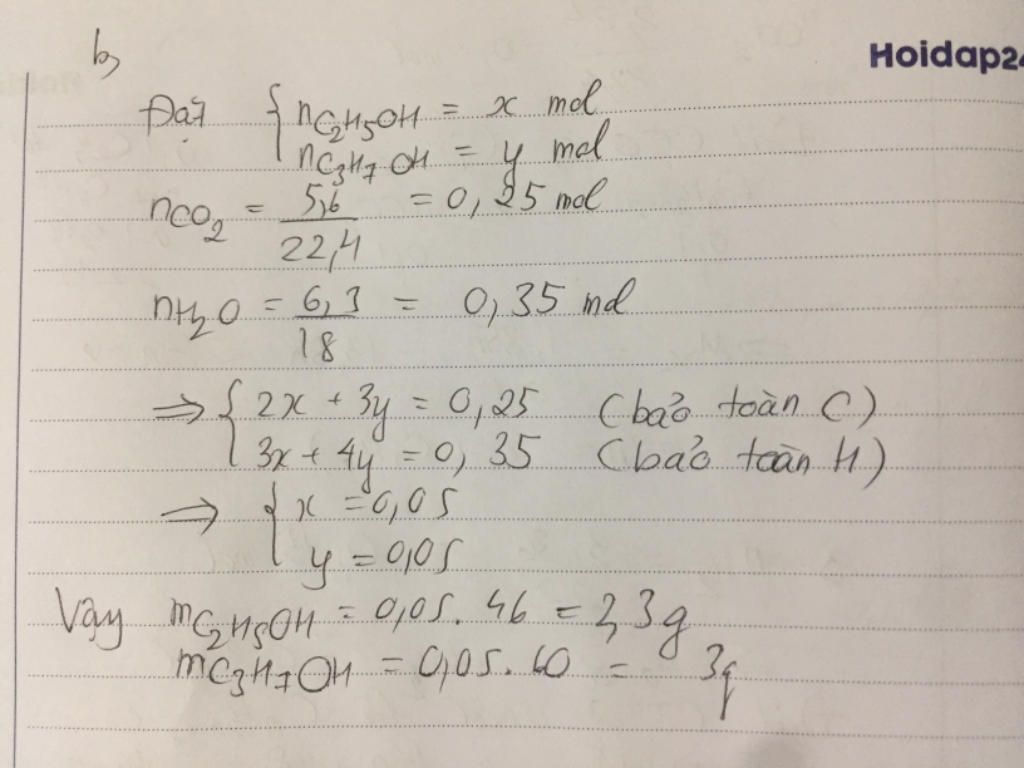 b,
Hoidap24
Đặt { nC₂H₅OH = x mol
nC₃H₇OH = y mol
nCO₂ = 5,6/22,4 = 0,25 mol
nH₂O = 6,3/18 = 0,35 mol
⇒ { 2x + 3y = 0,25 (bảo toàn C)
3x + 4y = 0,35 (bảo toàn H)
⇒ { x = 0,05
y = 0,05
Vậy mC₂H₅OH = 0,05. 46 = 2,3g
mC₃H₇OH = 0,05. 60 = 3g